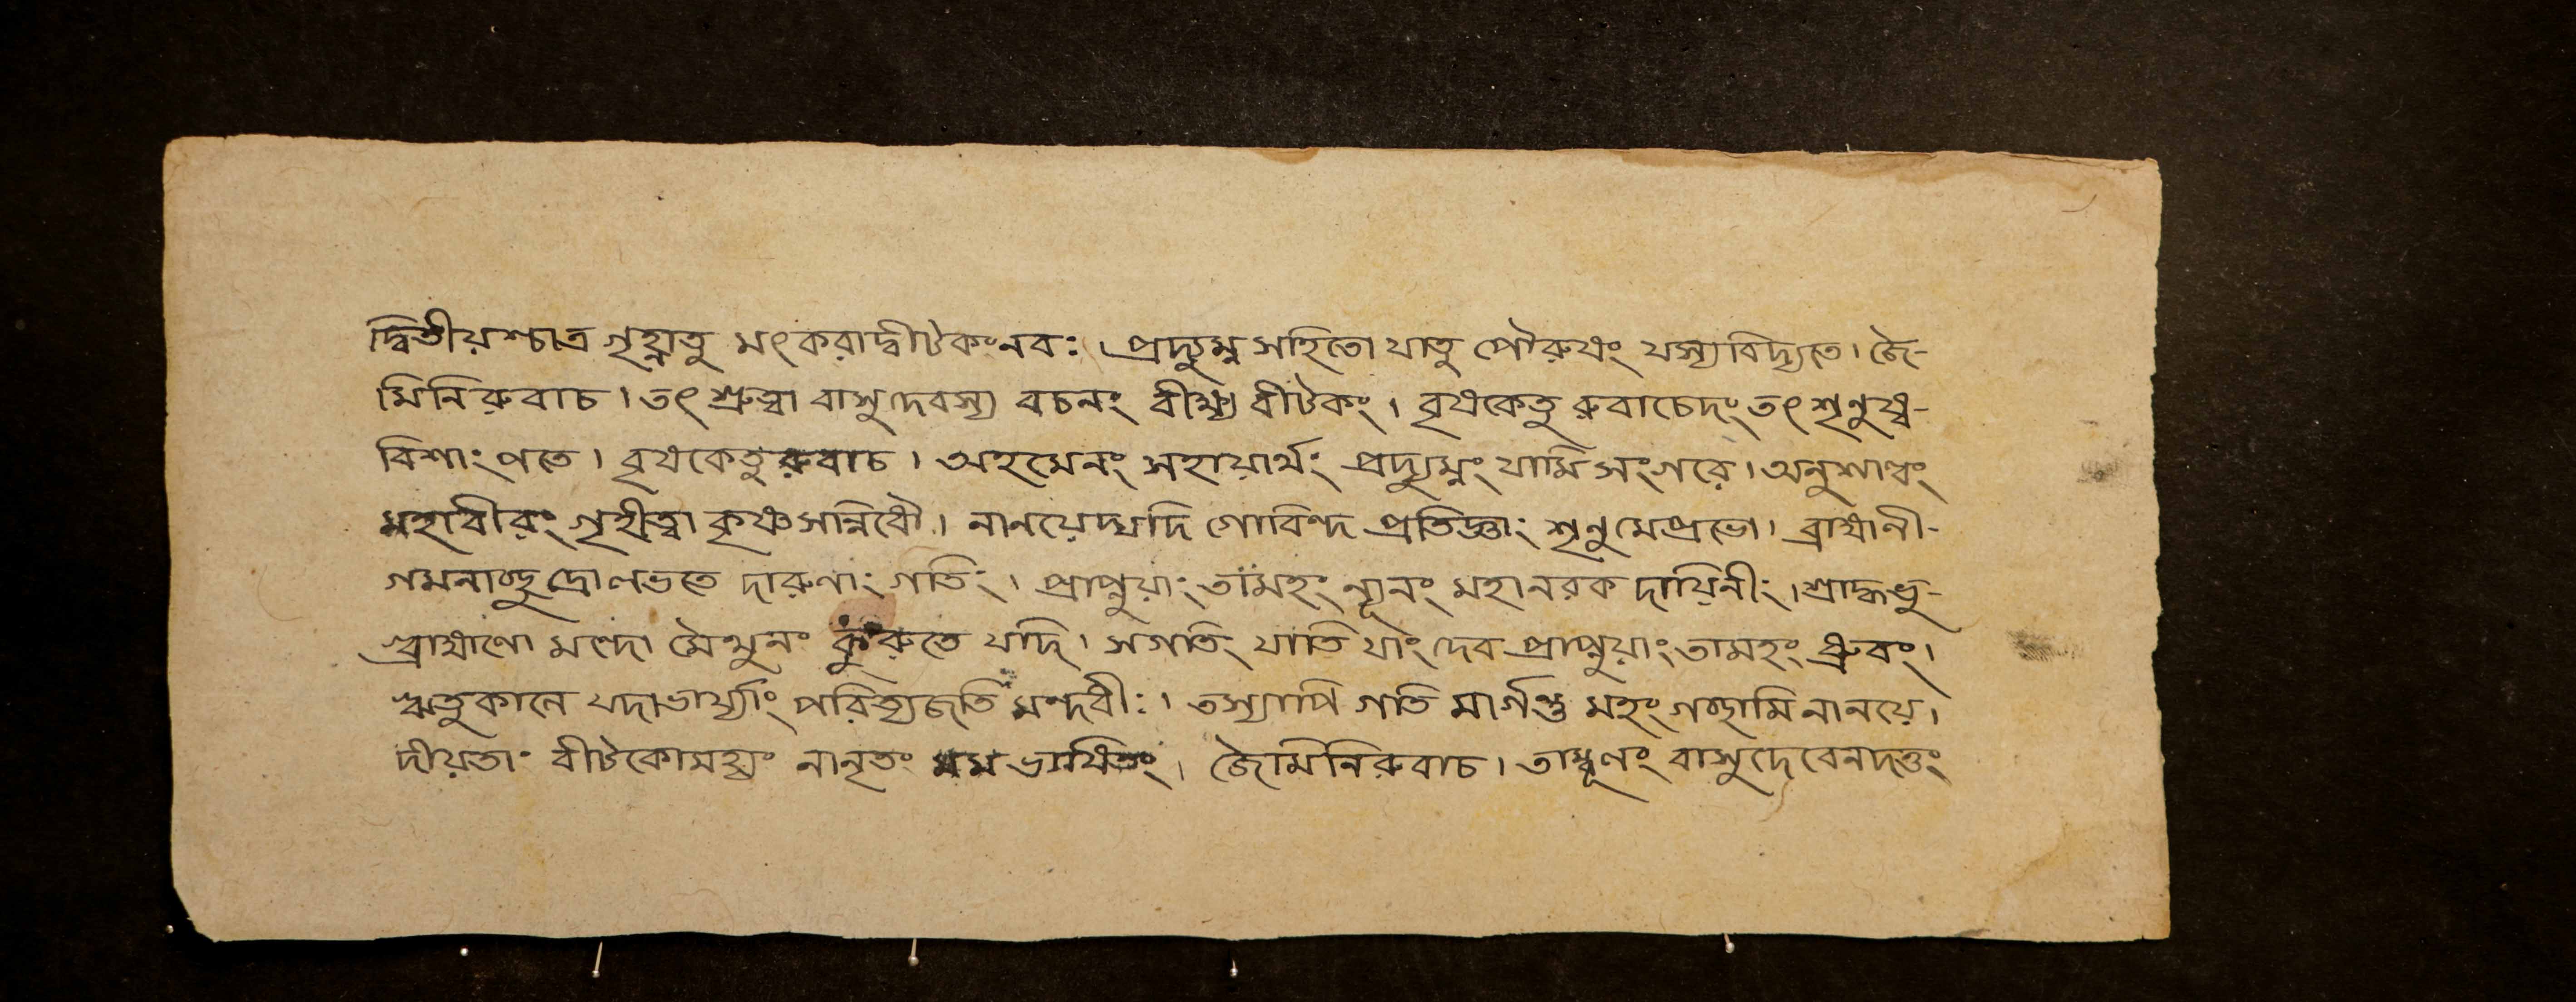 দ্বিতীয়শ্চাত্র গৃহ্ণাতু মৎকরাদ্বীটকংনরঃ । প্রদ্যুম্ন সহিতো যাতু পৌরুষং যস্যবিদ্যতে । জৈ-
মিনিরুবাচ । তৎ শ্রুত্বা বাসুদেবস্য বচনং বীক্ষ্য বীটকং । বৃষকেতু রুবাচেদং তৎ শৃনুষ্ব-
বিশাংপতে । বৃষকেতুরুবাচ । অহমেনং সহায়ার্থং প্রদ্যুম্নং যামি সংগরে । অনুশাল্বং
মহাবীরং গৃহীত্বা কৃষ্ণসন্নিধৌ । নানয়েদ্যদি গোবিন্দ প্রতিজ্ঞাং শৃনুমেপ্রভো । ব্রাহ্মনী-
গমনাচ্ছুদ্রোলভতে দারুণাং গতিং । প্রাপ্নুয়াং তামহং ন্যূনং মহানরক দায়িনীং । শ্রাদ্ধভু-
গ্ব্রাহ্মণো মন্দো মৈথুনং কুরুতে যদি । সগতিং যাতি যাং দেব প্রাপ্নুয়াং তামহং ধ্রুবং ।
ঋতুকালে যদাভার্য্যাং পরিত্যজতি মন্দধীঃ । তস্যাপি গতি মার্গন্তু মহং গচ্ছামি নানয়ে ।
দীয়তাং বীটকোমহ্যং নানৃতং মম ভাষিতং । জৈমিনিরুবাচ । তাম্বূলং বাসুদেবেনদত্তং